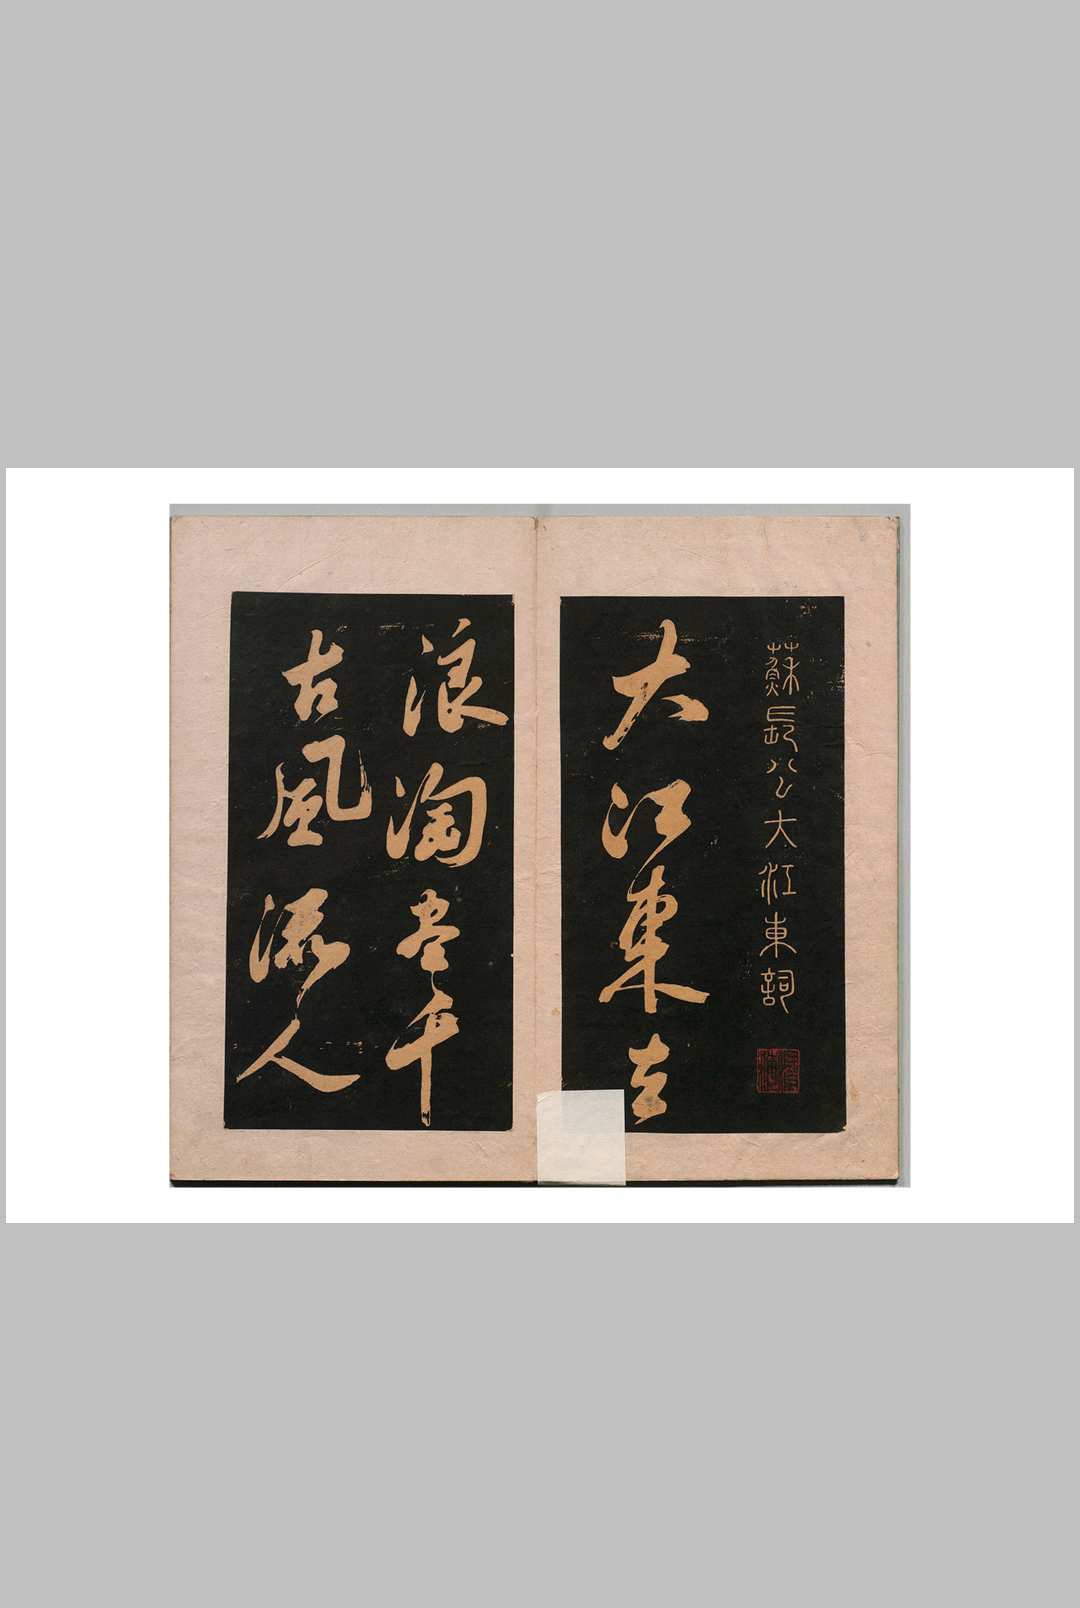 蘇長公大江東詞
大江東去
浪淘盡千
古風流人